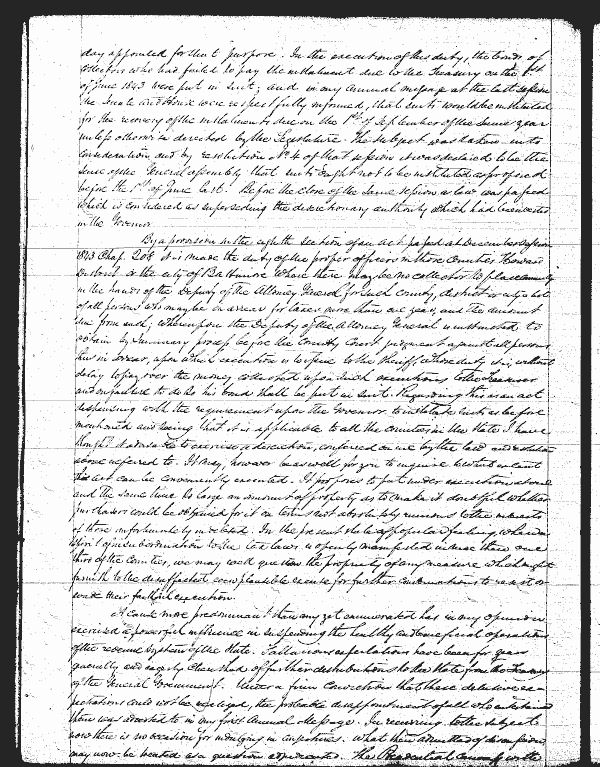 day appointed for that purpose. In the execution of this duty, the bonds of
collectors who had failed to pay the instalment due to the Treasury on the 1st
of June 1843 were put in suit; and in my annual message at the last session
the Senate and House were respectfully informed, that suits would be instituted
for the recovery of the instalments due on the 1st of September of the same year
unless otherwise directed by the Legislature. The subject was taken into
consideration, and by resolution No 4 of that session it was declared to be the
sense of the General Assembly that suits ought not to be instituted as proposed
before the 1st of June last. Before the close of the same session a law was passed
which is considered as superseding the discretionary authority which had been vested
in the Governor.
By a provision in the eighth section of an act passed at December session
1843 Chap. 208 it is made the duty of the proper officers in those Counties, Howard
District or the city of Baltimore where there may be no collector to place
in the hands of the Deputy of the Attorney General for such County, district or city a list
of all persons who may be in arrear for taxes more than one year, and the amount
due from each; whereupon the Deputy of the Attorney General is instructed to
obtain by summary process before the County Court judgment against all persons
thus in arrear, upon which execution is to issue to the Sheriff, whose duty it is, without
delay to pay over the money collected upon such executions to the Treasurer
and on failure to do so his bond shall be put in suit. Regarding this as an act
dispensing with the requirement upon the Governor to institute suits as before
mentioned and seeing that it is applicable to all the counties in the State I have
thought it advisable to exercise a discretion, conferred on me by the law and resolution
above referred to. It may, however be as well for you to inquire to what extent
this act can be conveniently executed. It proposes to put under execution at one
and the same time so large an amount of property as to make it doubtful whether
purchasers could be obtained for it on terms not absolutely ruinous to the interests
of those unfortunately indebted. In the present state of popular feeling, when a
spirit of insubordination to the tax laws is openly manifested in more than one
third of the counties, we may well question the propriety of any measure which might
furnish to the disaffected a new plausible excuse for further combinations to resist or
evade their faithful execution.
A cause more predominant than any yet enumerated has in my opinion
exercised a powerful influence in suspending the healthy and beneficial operations
of the revenue system of the State. Fallacious expectations have been for years
frequently and eagerly cherished of further distributions to the State from the Treasury
of the General Government. Under a firm conviction that these delusive ex-
pectations could not be realized, the probable disappointment of all who entertained
them was adverted to in my first annual message. In recurring to the subject
now there is no occasion for indulging in conjectures. What then admitted of discussion
may now be treated as a question adjudicated. The Presidential Canvass with